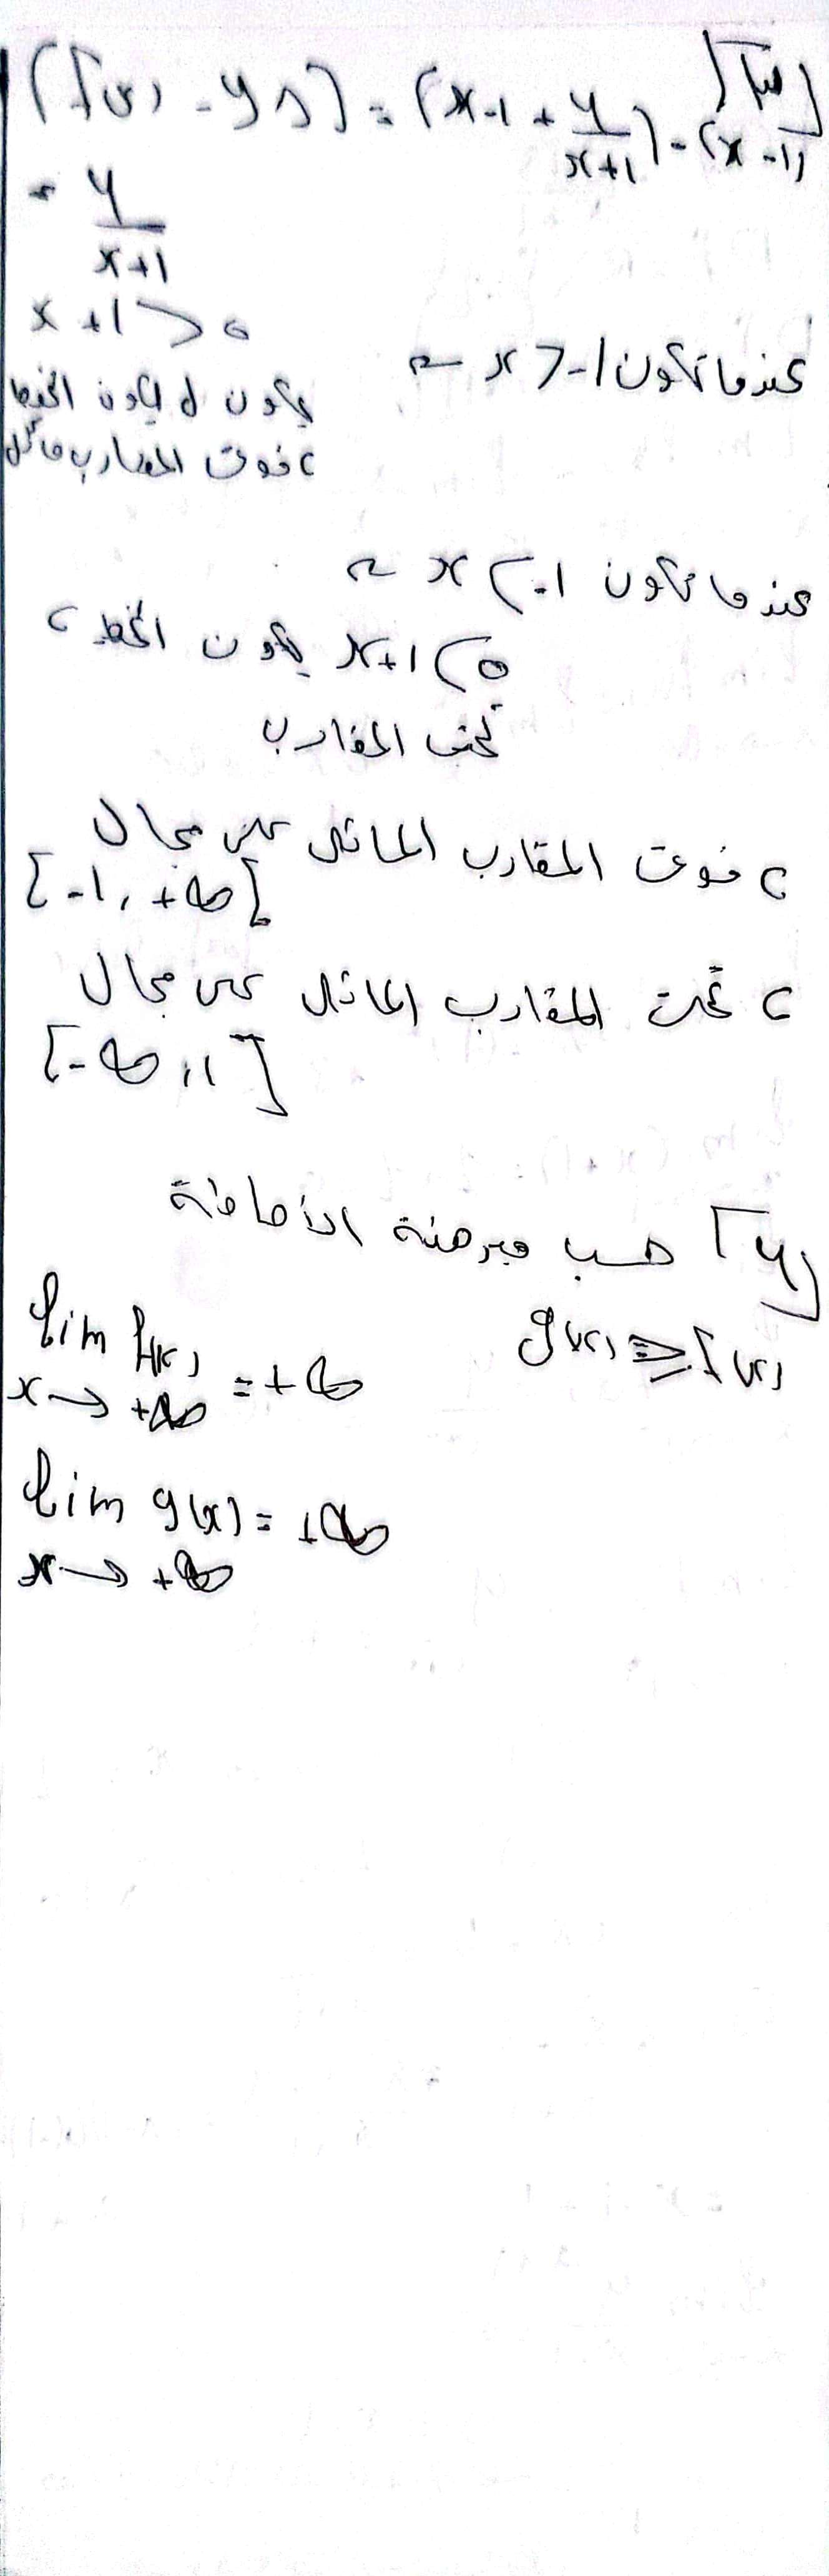 [f(x) - yΔ] = (x-1 + 4/(x+1)) - (x-1)
= 4/(x+1)
عندما تكون x > -1 ~
x+1 > 0
يكون الخط
c فوق المقارب مائل
عندما تكون x < -1 ~
x+1 < 0 يكون الخط c
تحت المقارب
c فوق المقارب المائل على مجال
]-1, +∞[
c تحت المقارب المائل على مجال
]-∞, 1[
4] حسب مبرهنة الاحاطة
g(x) ≥ f(x)
lim f(x) = +∞
x → +∞
lim g(x) = +∞
x → +∞